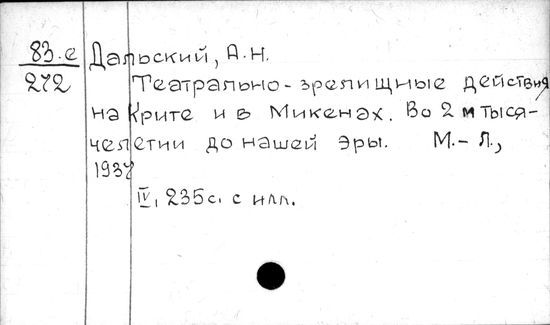 83.е Дальский, А.Н.
272 Театрально-зрелищные действия
на Крите и в Микенах. Во 2м тыся-
челетии до нашей эры. М.-Л.,
1937
IV, 235с. с илл.